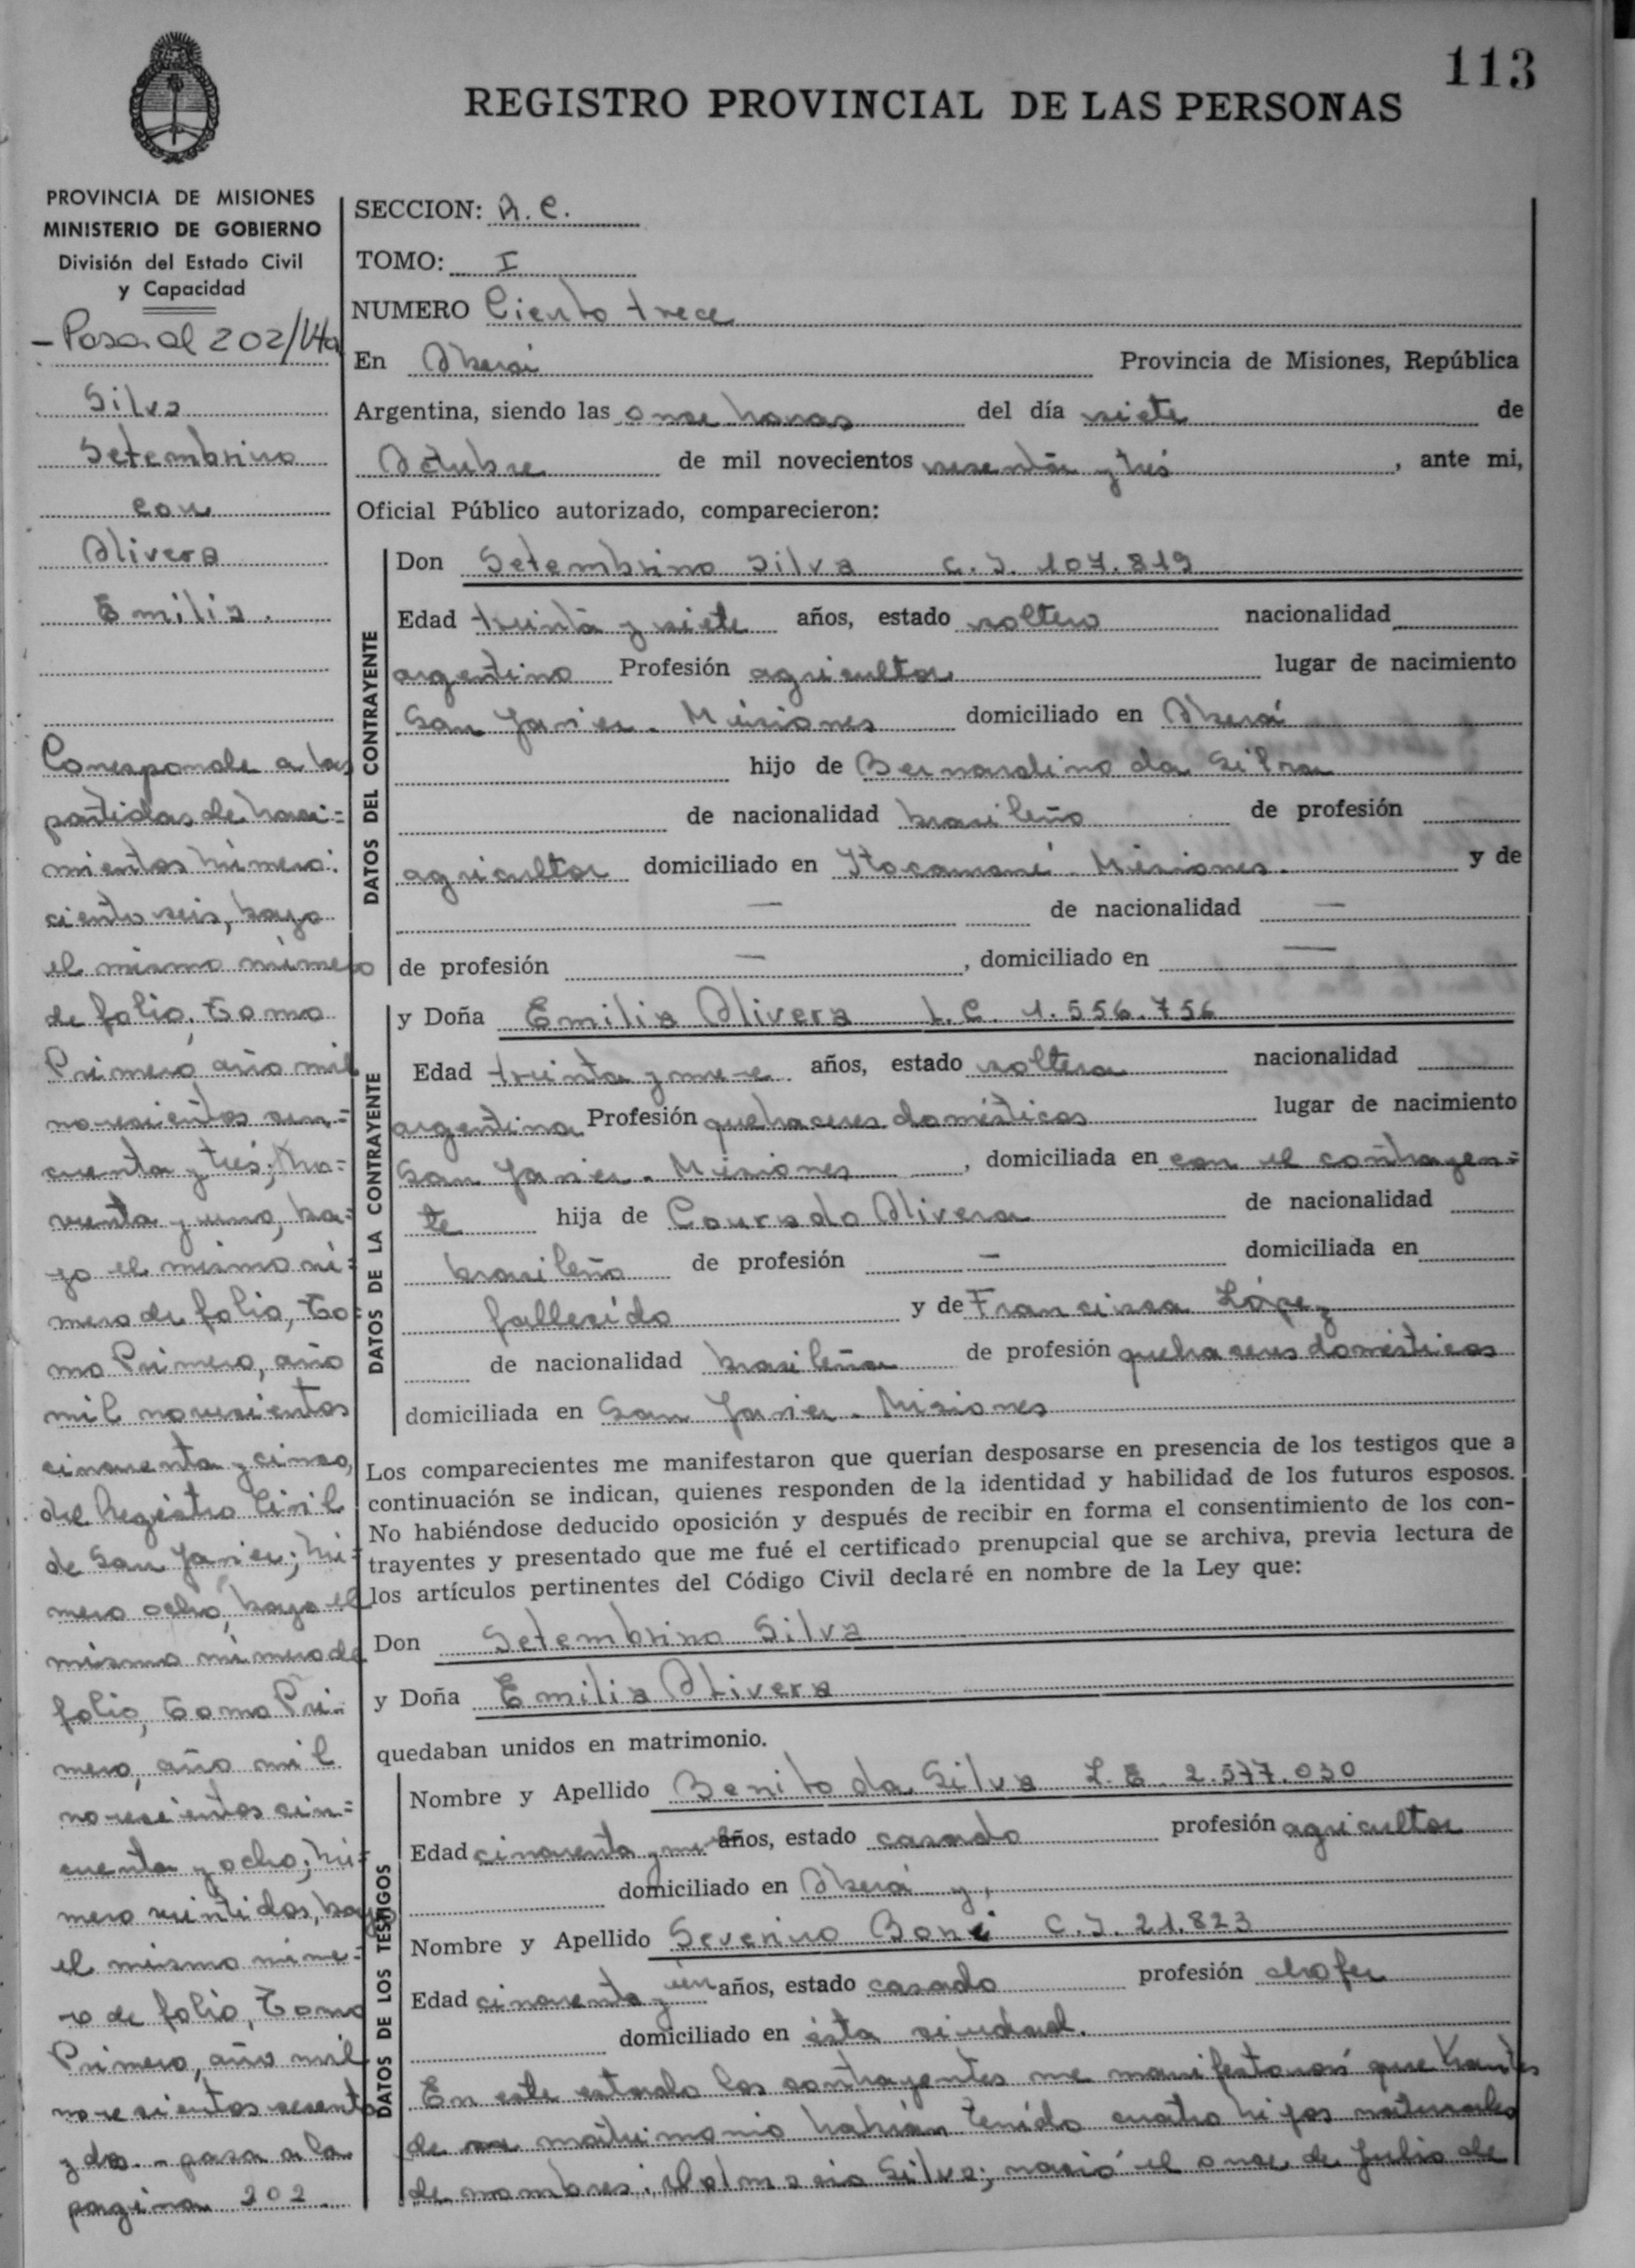 113
REGISTRO PROVINCIAL DE LAS PERSONAS
PROVINCIA DE MISIONES
MINISTERIO DE GOBIERNO
División del Estado Civil
y Capacidad
- Pasa al 202/Vta
Silva
Setembrino
con
Olivera
Emilia.
Corresponde a las
partidas de naci=
mientos número:
ciento seis, bajo
el mismo número
de folio, Tomo
Primero, año mil
novecientos cin=
cuenta y tres; No=
venta y uno, ba=
jo el mismo nú=
mero de folio, To=
mo Primero, año
mil novecientos
cincuenta y cinco,
del Registro Civil
de San Javier; nú=
mero ocho, bajo el
mismo número de
folio, Tomo Pri=
mero, año mil
novecientos cin=
cuenta y ocho; nú=
mero veintidos, bajo
el mismo núme=
ro de folio, Tomo
Primero, año mil
novecientos sesenta
y dos.- pasa a la
página 202
SECCION: A. C.
TOMO: I
NUMERO Ciento trece
En Oberá Provincia de Misiones, República
Argentina, siendo las once horas del día siete de
Octubre de mil novecientos sesenta y tres, ante mi,
Oficial Público autorizado, comparecieron:
DATOS DEL CONTRAYENTE
Don Setembrino Silva C. I. 107.819
Edad treinta y siete años, estado soltero nacionalidad
argentino Profesión agricultor lugar de nacimiento
San Javier - Misiones domiciliado en Oberá
hijo de Bernardino da Silva
de nacionalidad brasileño de profesión
agricultor domiciliado en Itacaruaré - Misiones. y de
— de nacionalidad —
de profesión —, domiciliado en —
DATOS DE LA CONTRAYENTE
y Doña Emilia Olivera L. C. 1.556.756
Edad treinta y nueve años, estado soltera nacionalidad
argentina Profesión quehaceres domésticos lugar de nacimiento
San Javier - Misiones, domiciliada en con el contrayen=
te hija de Conrado Olivera de nacionalidad
brasileño de profesión — domiciliada en
fallecido y de Francisca López
de nacionalidad brasileña de profesión quehaceres domésticos
domiciliada en San Javier - Misiones
Los comparecientes me manifestaron que querían desposarse en presencia de los testigos que a
continuación se indican, quienes responden de la identidad y habilidad de los futuros esposos.
No habiéndose deducido oposición y después de recibir en forma el consentimiento de los con-
trayentes y presentado que me fué el certificado prenupcial que se archiva, previa lectura de
los artículos pertinentes del Código Civil declaré en nombre de la Ley que:
Don Setembrino Silva
y Doña Emilia Olivera
quedaban unidos en matrimonio.
DATOS DE LOS TESTIGOS
Nombre y Apellido Benito da Silva L. E. 2.577.030
Edad cincuenta y años, estado casado profesión agricultor
domiciliado en Oberá y,
Nombre y Apellido Severino Boni C. I. 21.823
Edad cincuenta y un años, estado casado profesión chofer
domiciliado en ésta ciudad.
En este estado los contrayentes me manifestaron que antes
de matrimonio habían tenido cuatro hijos naturales
de nombres: Silva; nació el once de Julio de